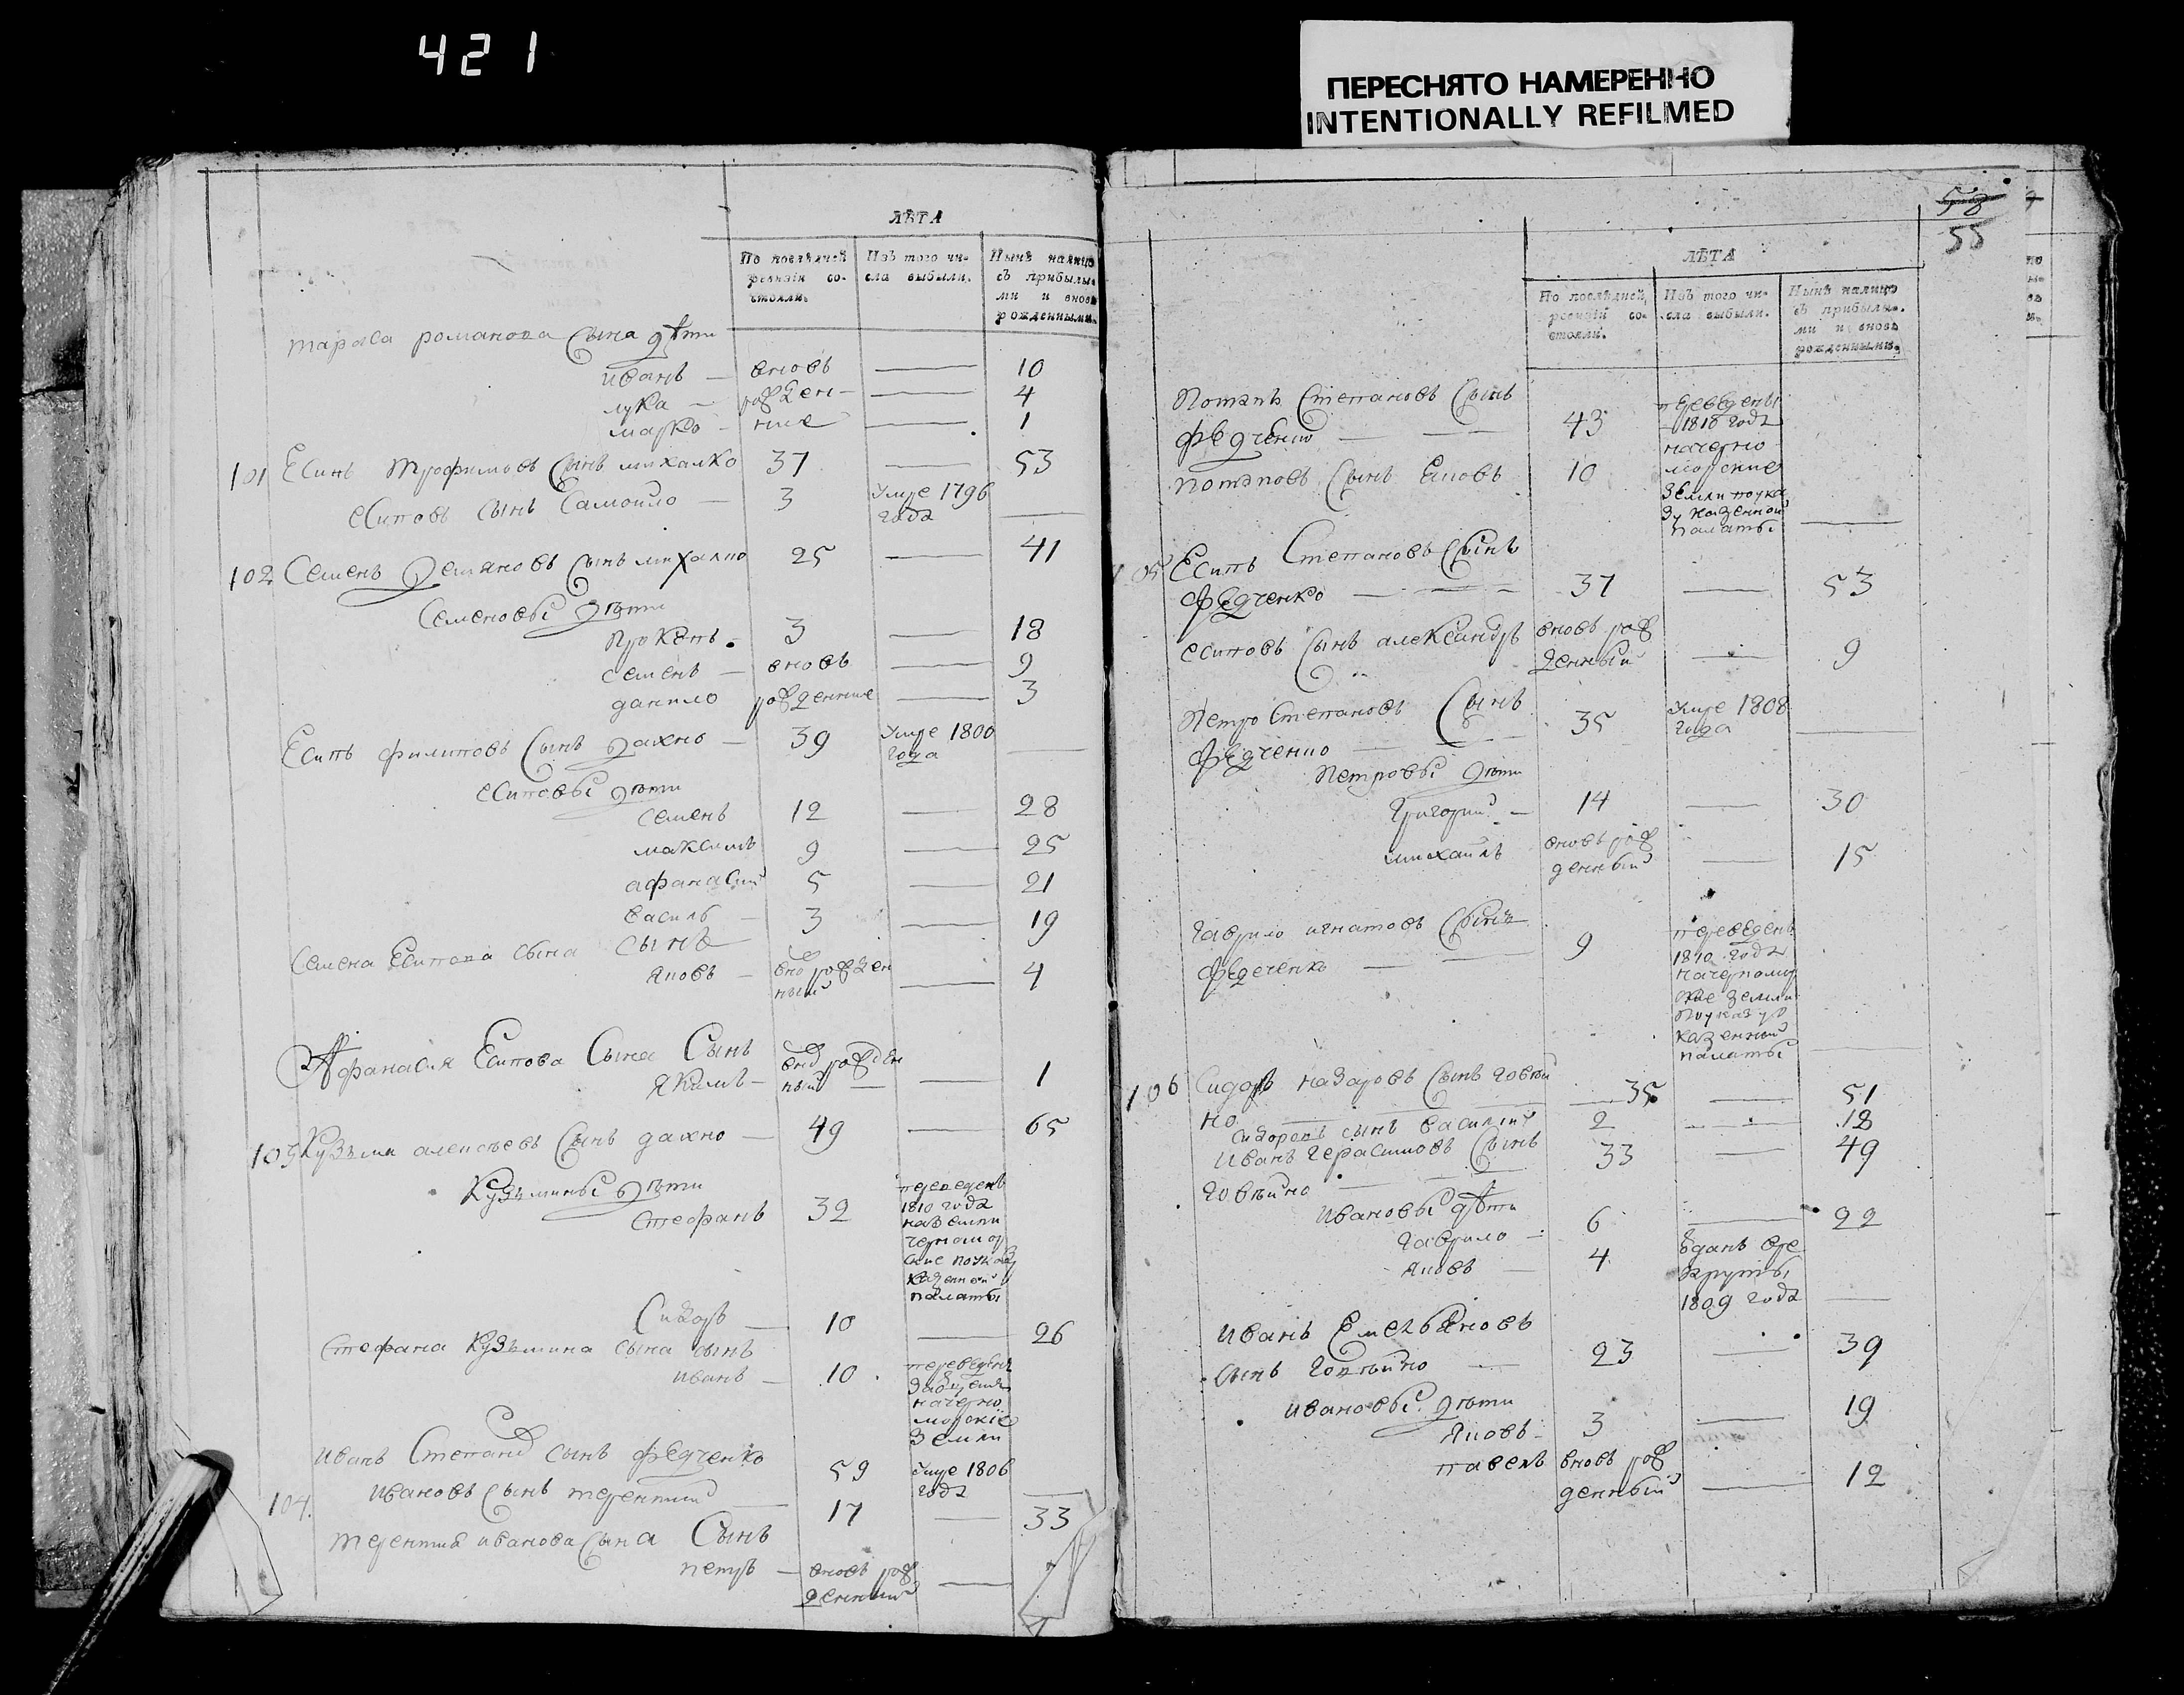 421
ПЕРЕСНЯТО НАМЕРЕННО
INTENTIONALLY REFILMED
ЛѢТА
По послѣдней ревизіи состояли.
Изъ того числа выбыли.
Нынѣ налицо съ прибылыми и вновь рожденными.
тараса романова сына дѣти
иванъ — вновь — 10
лука — рожден — 4
марко — ние — 1
101 Есипъ трофимовъ сынъ михалко 37 — 53
есиповъ сынъ Самойло — 3 умре 1796 года —
102 Семенъ Демяновъ сынъ михалко 25 — 41
Семеновы дѣти
3 — 18
семенъ — вновь — 9
данило рожденние — 3
Есипъ филиповъ сынъ дахно — 39 умре 1800 года —
есиповы дѣти
семенъ 12 — 28
максимъ 9 — 25
афанасий 5 — 21
василь — 3 — 19
Семена Есипова сына сынъ
яковъ — вно рожден ный — 4
Афанасия Есипова Сына Сынъ
якимъ — вно рожден ный — 1
103 Кузьма алексѣевъ сынъ дахно — 49 — 65
Кузьмины дѣти
стефанъ 32 переведенъ
1810 года
на земли
черномор
ские по указу
казенной
палаты
Сидоръ — 10 — 26
стефана Кузьмина сына сынъ
иванъ — 10
переведенъ
на черно
морские
земли
иванъ Степановъ сынъ федченко 59 умре 1806 года —
104. ивановъ сынъ терентий — 17 — 33
терентия иванова сына Сынъ
петръ — вновь рож денный —
58
55
ЛѢТА
По послѣдней ревизіи состояли.
Изъ того числа выбыли.
Нынѣ налицо съ прибылыми и вновь рожденными.
Потапъ Степановъ Сынъ
федченко — 43
потаповъ сынъ яковъ 10
переведены
1810 года
на черно
морские
земли по ука
зу казенной
палаты —
105 Есипъ Степановъ Сынъ
федченко — 37 — 53
есиповъ сынъ александръ вновь рож денный — 9
Петро Степановъ Сынъ
федченко — 35 умре 1808 года —
Петровы дѣти
григорий — 14 — 30
михаилъ вновь рож денный — 15
гаврило игнатовъ сынъ
федченко — 9
переведенъ
1810 года
на черномор
ские земли
по указу
казенной
палаты —
106 Сидоръ назаровъ сынъ говтй
но — 35 — 51
сидоровъ сынъ василий 2 — 18
Иванъ герасимовъ Сынъ 33 — 49
Ивановы дѣти
гаврило — 6 — 22
яковъ — 4
вданъ вре
круты
1809 года —
иванъ Емельяновъ
сынъ — 23 — 39
ивановы дѣти
яковъ 3 — 19
павелъ вновь рож денный — 12